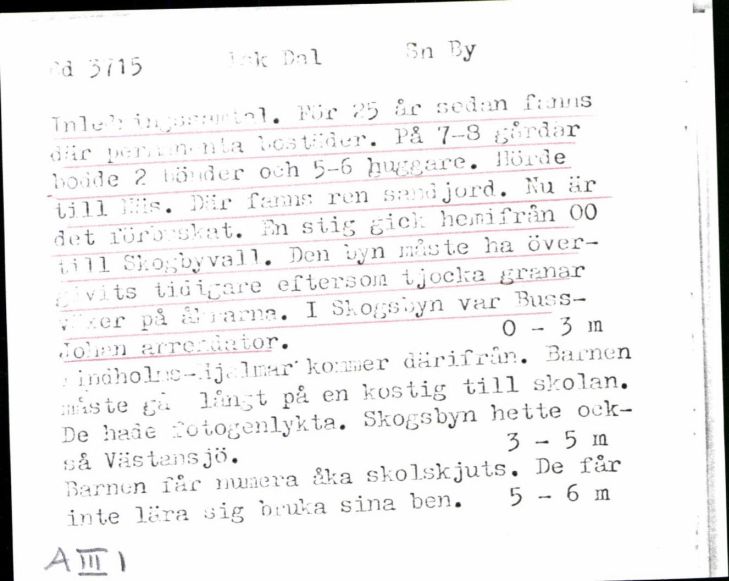 Gd 3715 Lsk Dal Sn By
Inledningssamtal. För 25 år sedan fanns
där permanenta bostäder. På 7-8 gårdar
bodde 2 bönder och 5-6 huggare. Hörde
till Näs. Där fanns ren sandjord. Nu är
det förbuskat. En stig gick hemifrån OO
till Skogbyvall. Den byn måste ha över-
givits tidigare eftersom tjocka granar
växer på åkrarna. I Skogsbyn var Buss-
Johan arrendator. 0 - 3 m
Lindholms-Hjalmar kommer därifrån. Barnen
måste gå långt på en kostig till skolan.
De hade fotogenlykta. Skogsbyn hette ock-
så Västansjö. 3 - 5 m
Barnen får numera åka skolskjuts. De får
inte lära sig bruka sina ben. 5 - 6 m
A III 1